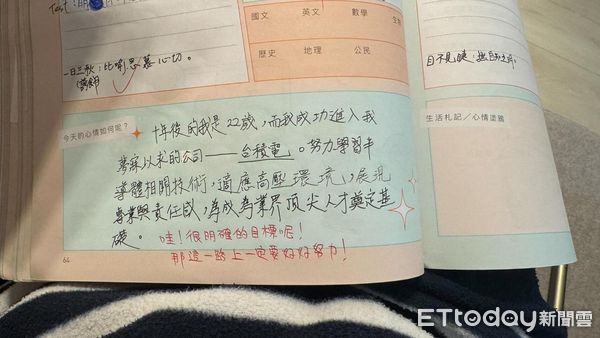 Test:
國文 英文 數學
歷史 地理 公民
一日三秋：比喻思慕心切。
目不見睫
今天的心情如何呢？
十年後的我是22歲，而我成功進入我
夢寐以求的公司——台積電。努力學習半
導體相關技術，適應高壓環境，展現
專業與責任感，為成為業界頂尖人才奠定基
礎。
哇！很明確的目標呢！
那這一路上一定要好好努力！
64
生活札記／心情塗鴉
ETtoday新聞雲